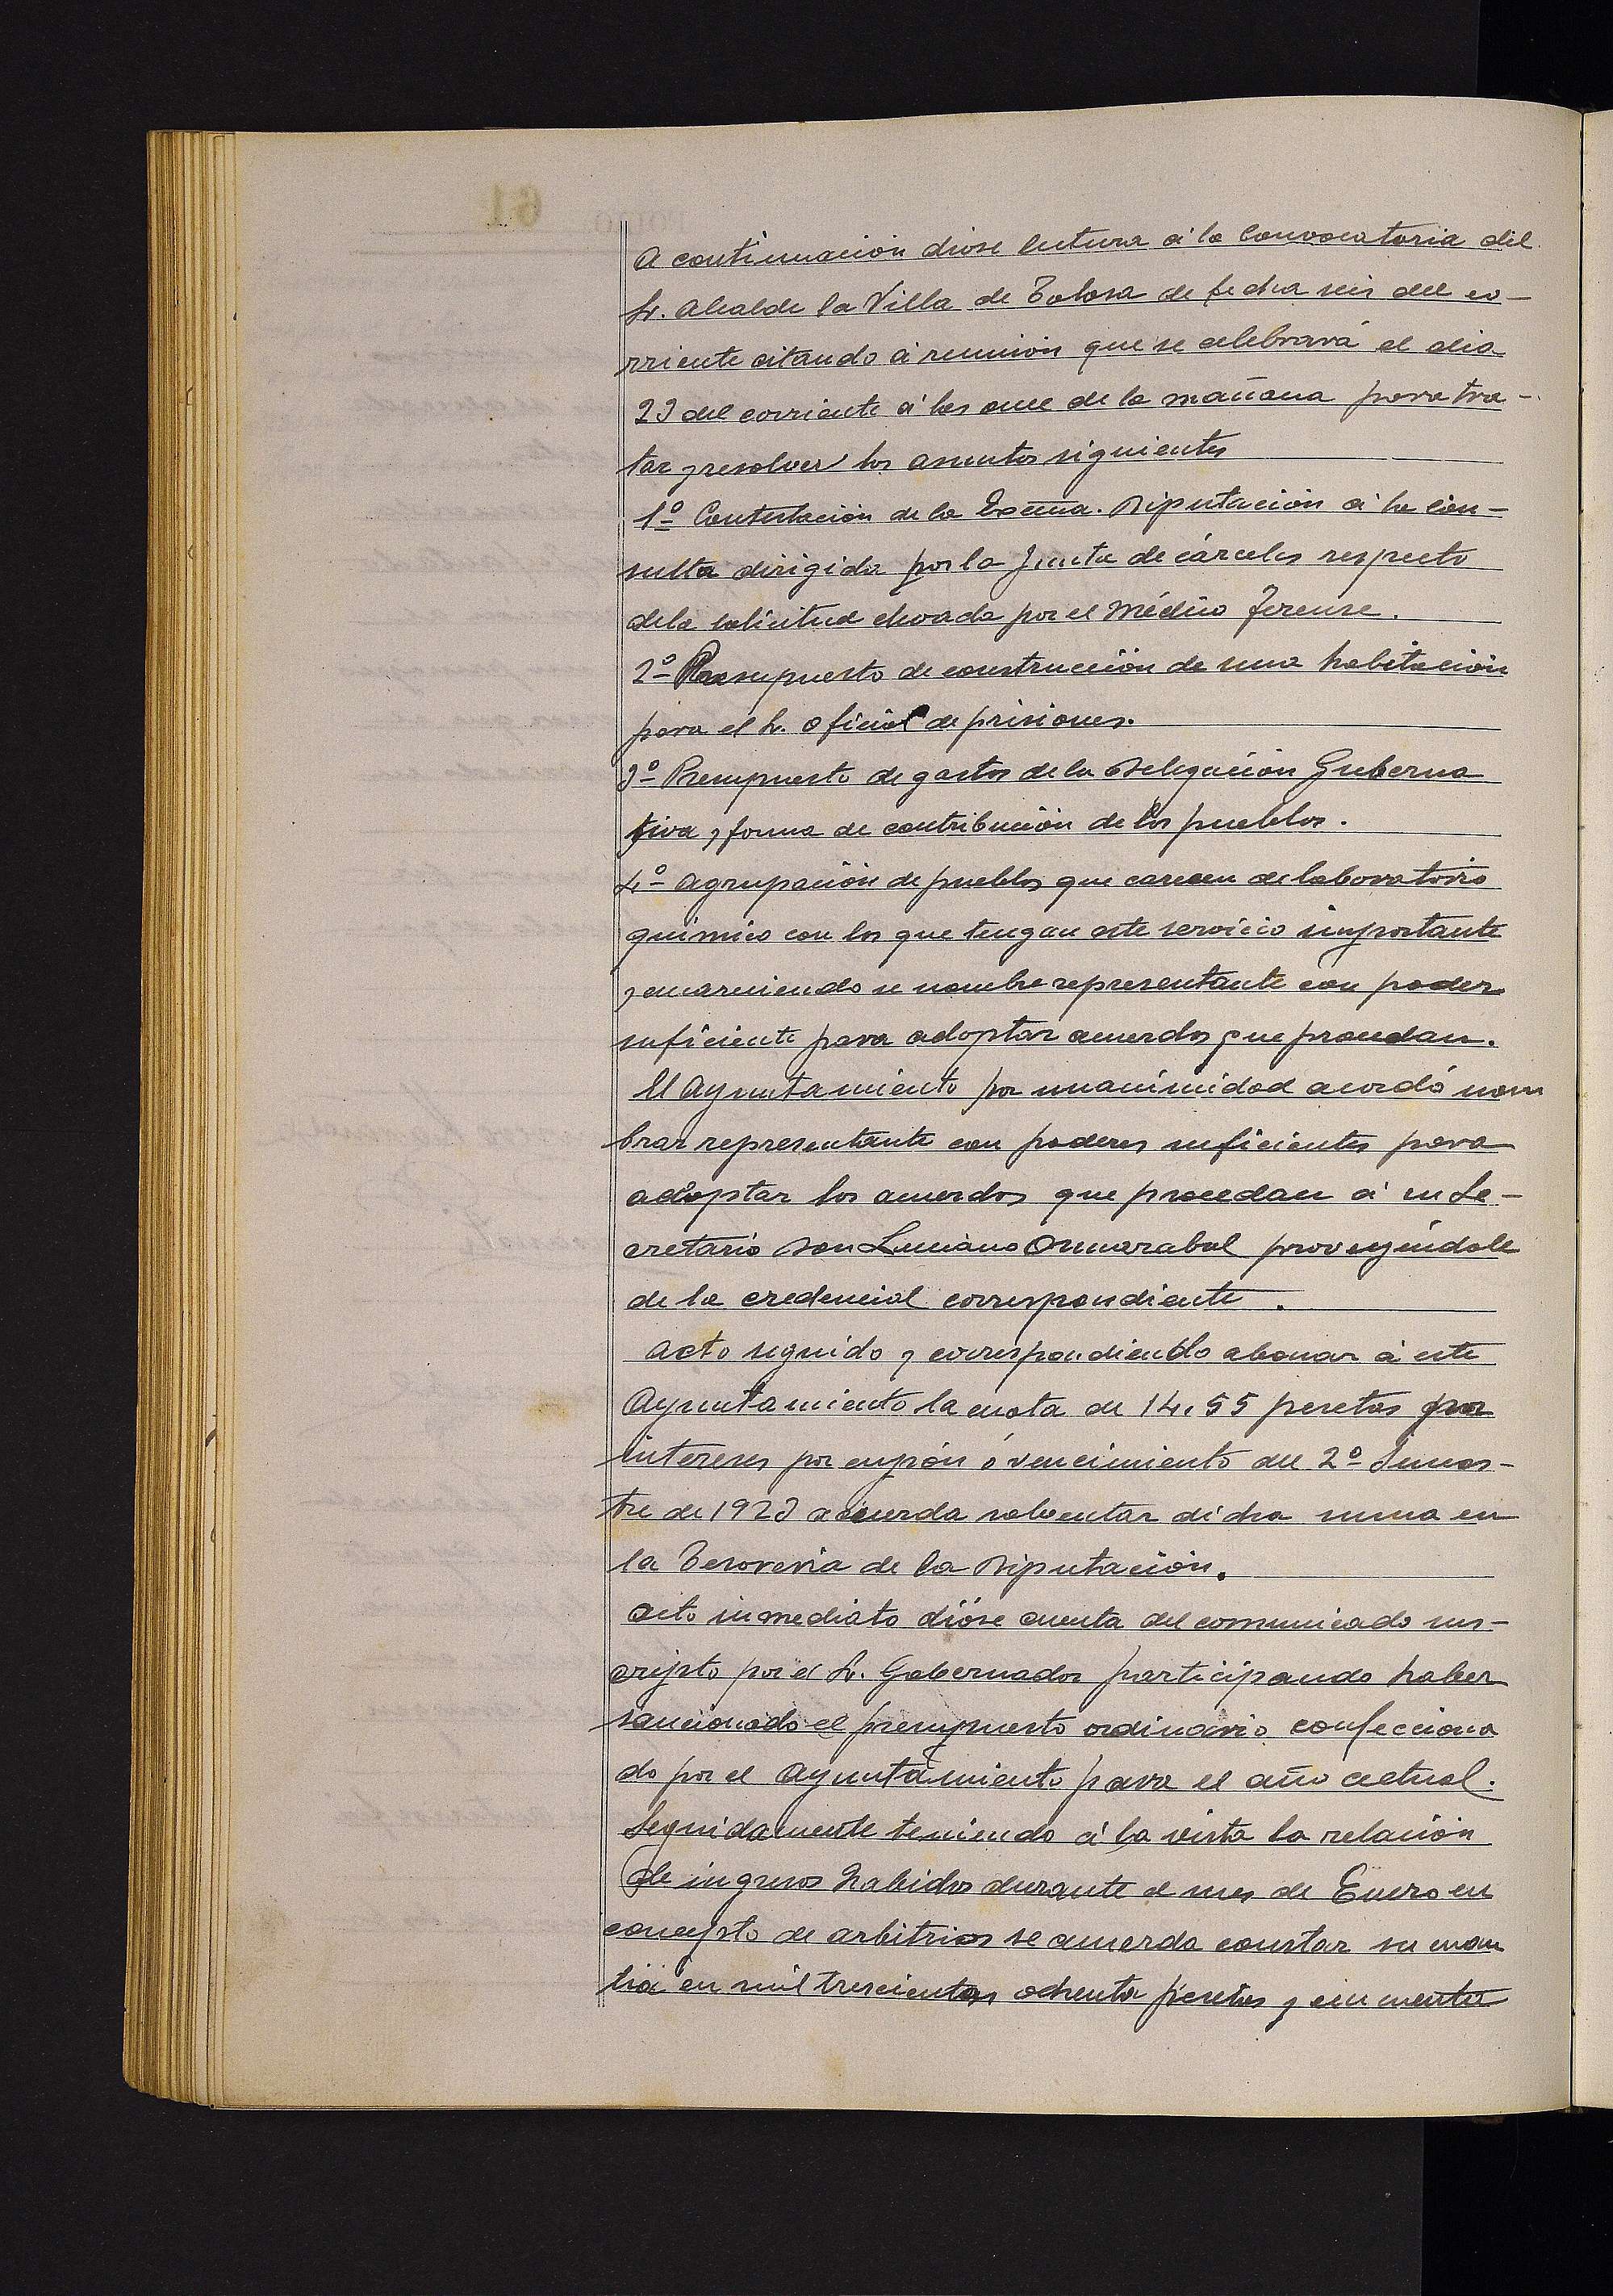 A continuación dióse lectura á la Convocatoria del
Sr. Alcalde la Villa de Tolosa de fecha seis del co-
rriente citando á reunión que se celebrará el dia
23 del corriente á las once de la mañana para tra-
tar y resolver los asuntos siguientes
1º Contestación de la Excma. Diputación á la con-
sulta dirigida por la Junta de cárceles respecto
de la solicitud elevada por el Médico Forense.
2º Presupuesto de construcción de una habitación
para el Sr. Oficial de prisiones.
3º Presupuesto de gastos de la Delegación Guberna
tiva y forma de contribución de los pueblos.
4º Agrupación de pueblos que carecen de laboratorio
químico con los que tengan este servicio importante
y encareciendo se nombre representante con poder
suficiente para adoptar acuerdos que procedan.
El Ayuntamiento por unanimidad acordó nom
brar representante con poderes suficientes para
adoptar los acuerdos que procedan á su Se-
cretario Don Luciano proveyéndole
de la credencial correspondiente.
Acto seguido y correspondiendo abonar á este
Ayuntamiento la cuota de 14,55 pesetas por
intereses por cupón ó vencimiento del 2º Semes-
tre de 1923 acuerda solventar dicha suma en
la Tesoreria de la Diputación.
Acto inmediato dióse cuenta del comunicado sus-
cripto por el Sr. Gobernador participando haber
sancionado el presupuesto ordinario confecciona
do por el Ayuntamiento para el año actual.
Seguidamente teniendo á la vista la relación
de ingresos habidos durante el mes de Enero en
concepto de arbitrios se acuerda constar su cuan
tia en mil trescientas ochenta pesetas y cincuenta